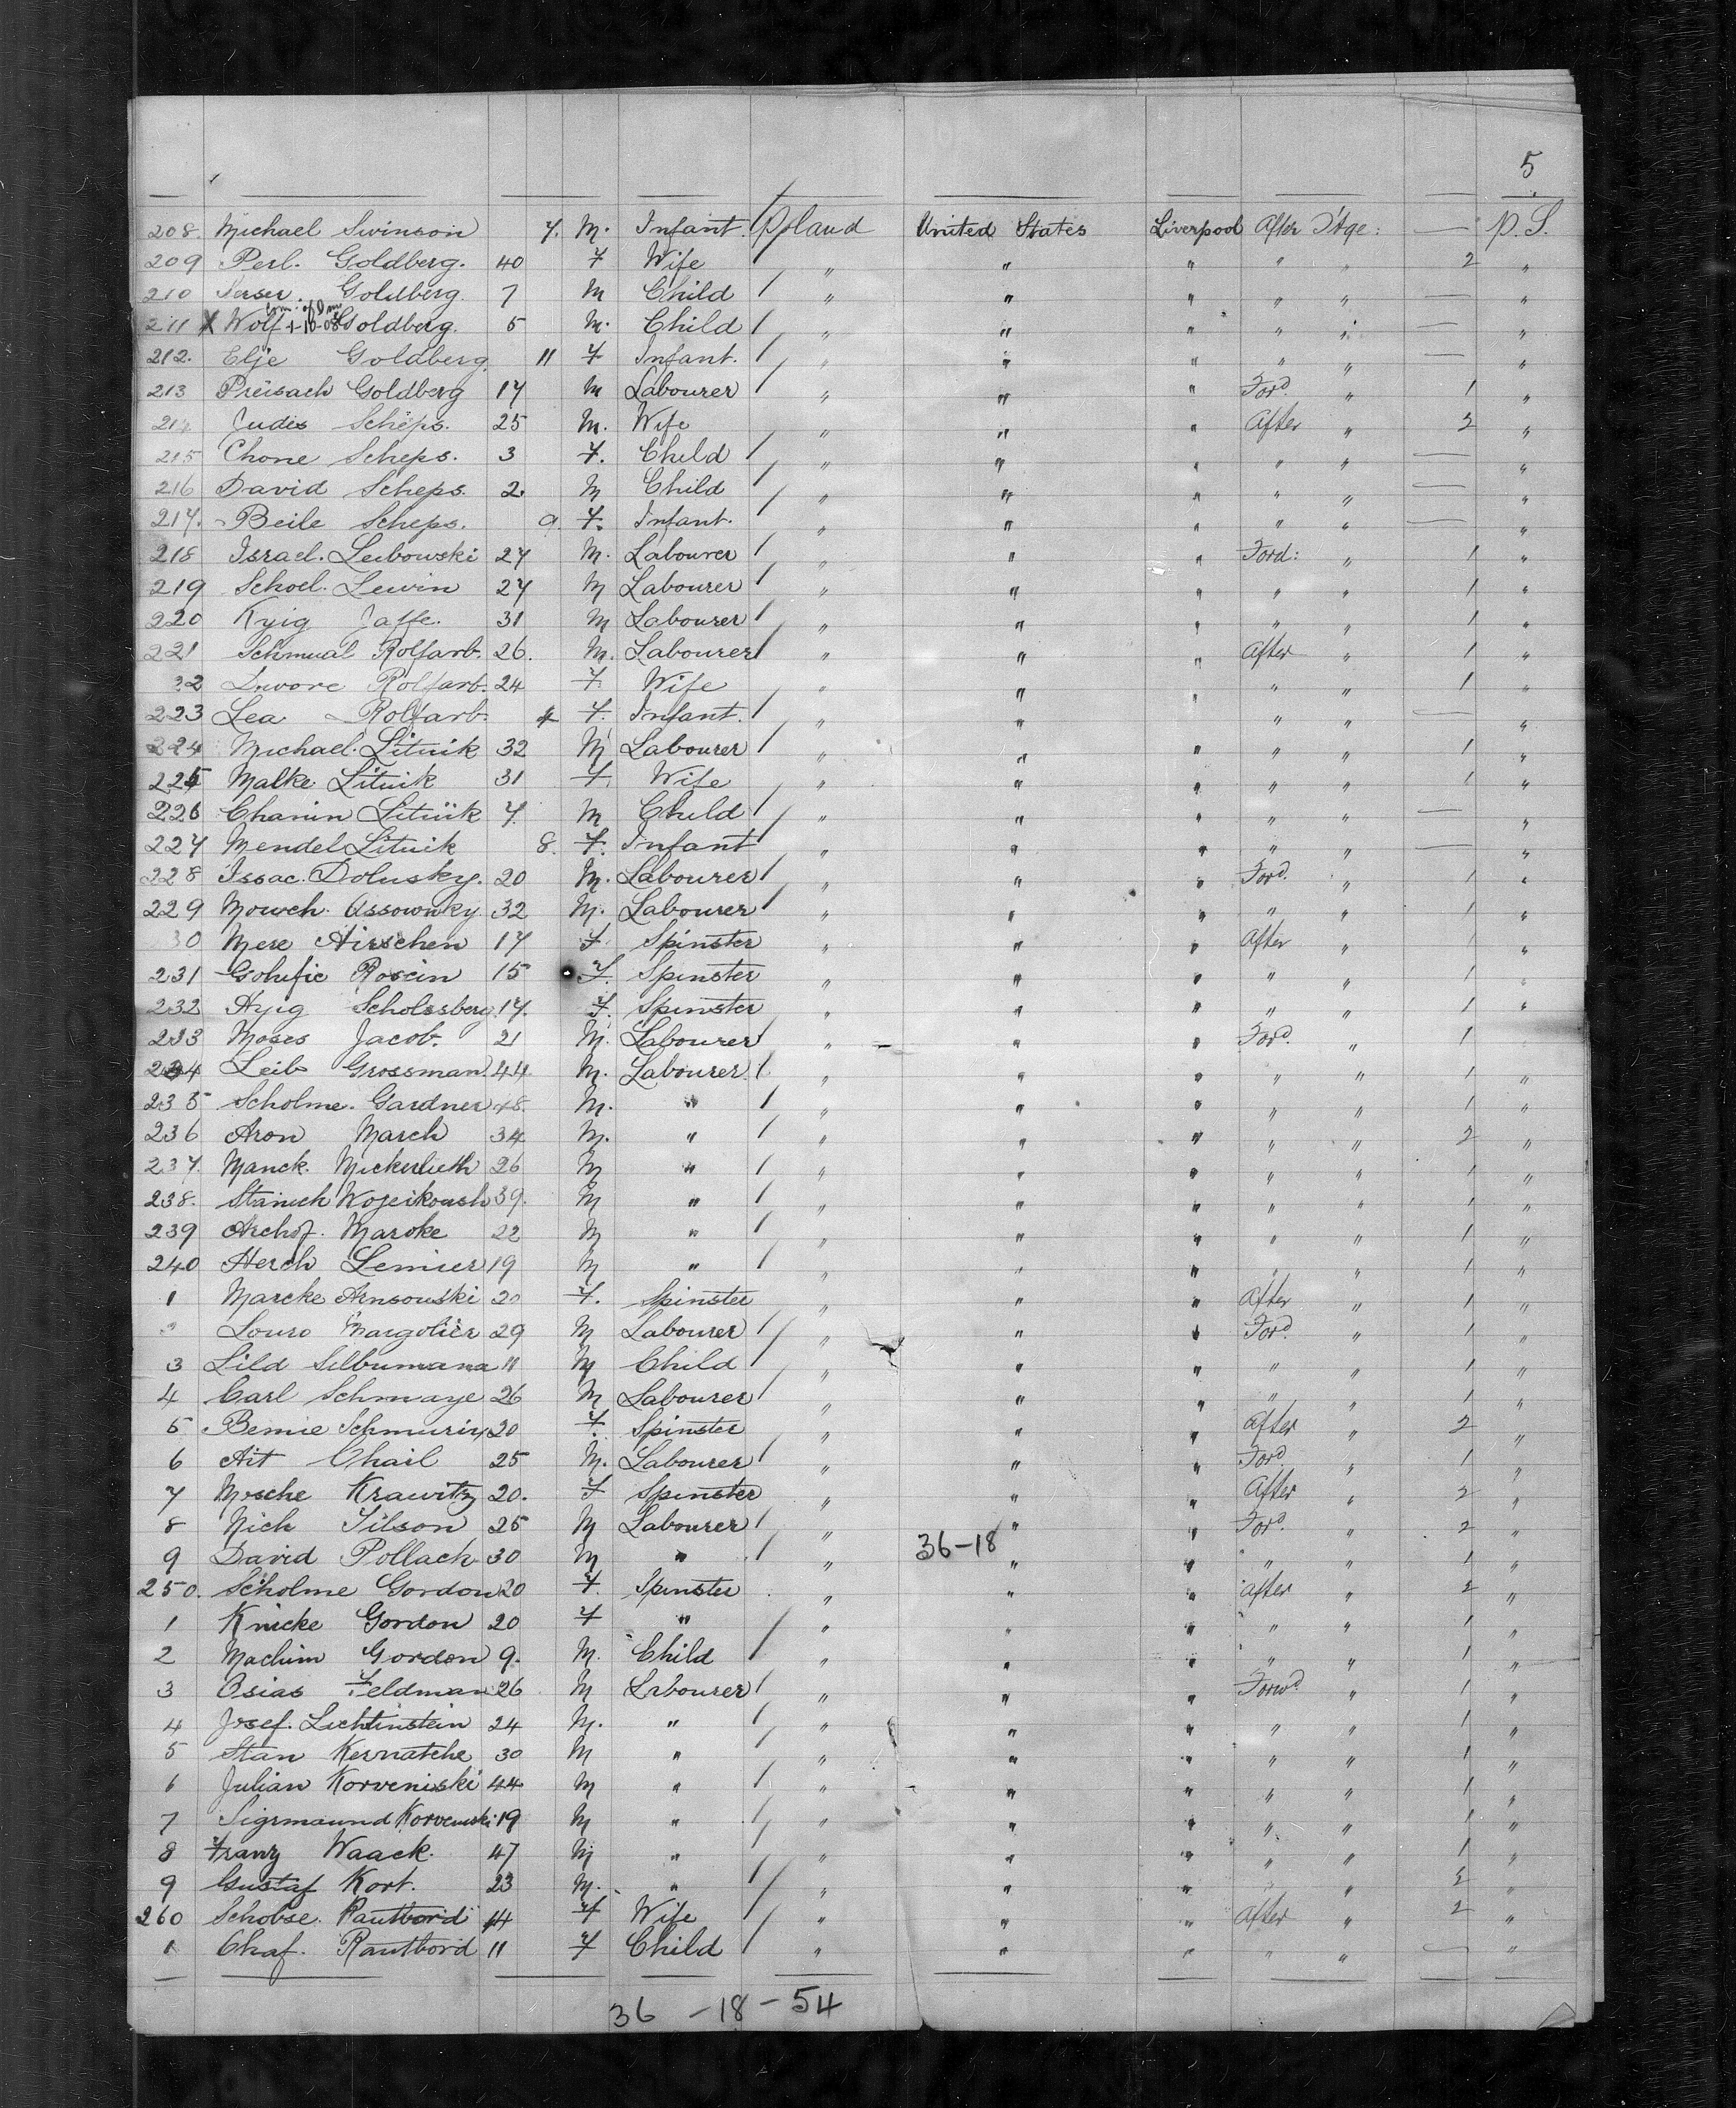 5
208. Michael Swinson 7. M. Infant. Poland United States Liverpool After St'ge: — P.S.
209 Perl. Goldberg. 40 F Wife " " " " " 2 "
210 Goldberg. 7 M Child " " " " " — "
211 X Wolf +-10-08 Goldberg. 5 M. Child " " " " " — "
212. Elje Goldberg. 11 F Infant. " " " " " — "
213 Preisach Goldberg 17 M Labourer " " " Ford. " 1 "
214 Judes Scheps. 25 M. Wife " " " After " 2 "
215 Chone Scheps. 3 F. Child " " " " " — "
216 David Scheps. 2. M Child " " " " " — "
217. Beile Scheps. 9. F. Infant. " " " " " — "
218 Israel. Leibowski 27 M. Labourer " " " Ford: " 1 "
219 Schoel. Lewin 27 M Labourer " " " " " 1 "
220 Kyig Jaffe. 31 M Labourer " " " " " 1 "
221 Schmual Rolfarb. 26. M. Labourer " " " After " 1 "
22 Dwore Rolfarb. 24 F. Wife " " " " " 1 "
223 Lea Rolfarb. 4 F. Infant. " " " " " — "
224 Michael. Lituik 32 M Labourer " " " " " 1 "
225 Malke Lituik 31 F. Wife " " " " " 1 "
226 Chanin Lituik 7. M Child " " " " " — "
227 Mendel Lituik 8. F. Infant " " " " " — "
228 Issac. Dolusky. 20 M. Labourer " " " Ford. " 1 "
229 Mowch. Ussownky 32 M. Labourer " " " " " 1 "
30 Mere Hirschen 17 F. Spinster " " " After " 1 "
231 Golufie Roscin 15 F. Spinster " " " " " 1 "
232 Hyig Scholssberg. 17. F. Spinster " " " " " 1 "
233 Moses Jacob. 21 M. Labourer " " " Ford. " 1
234 Leib Grossman 44 M. Labourer. " " " " " 1 "
235 Scholme. Gardner 48. M. " " " " " " 1 "
236 Aron March 34 M. " " " " " " 2 "
237. Manck. Mickerlieth 26 M " " " " " " 1 "
238. Stanich Wojeikoush 39. M " " " " " " 1 "
239 Archof. Maroke 22 M " " " " " " 1 "
240 Herch Lemier 19 M " " " " " " 1 "
1 Marcke Arnsowski 20 F. Spinster " " " After " 1 "
Louro Margolier 29 M Labourer " " " Ford. " 1 "
3 Lild Silbumana 11 M Child " " " " " 1 "
4 Carl Schmaye 26 M Labourer " " " " " 1 "
5 Bemie Schmurix 20 F. Spinster " " " After " 2 "
6 Ait Chail 25 M. Labourer " " " Ford. " 1 "
7 Mosche Krawitz 20. F Spinster " " " After " 2 "
8 Nich Silson 25 M Labourer " " " Ford. " 2 "
9 David Pollach 30 M " " 36-18 " " " " 1 "
250. Scholme Gordon 20 F. Spinster " " " after " 2 "
1 Knicke Gordon 20 F " " " " " " 1 "
2 Machim Gordon 9. M. Child " " " " " 1 "
3 Osias Feldman 26 M Labourer " " " Forwd. " 1 "
4 Josef. Lichtinstein 24 M. " " " " " " 1 "
5 Stan Kernatche 30 M " " " " " " 1 "
6 Julian Korveniski 44 M " " " " " " 1 "
7 Sigrmaund Korveniski 19 M " " " " " " 1 "
8 Franz Waack. 47 M " " " " " " 1 "
9 Gustaf Kort. 23 M. " " " " " " 2 "
260 Schobse. Rautbord 44 F Wife " " " after " 2 "
1 Chaf. Rautbord 11 F Child " " " " " — "
36 - 18 - 54